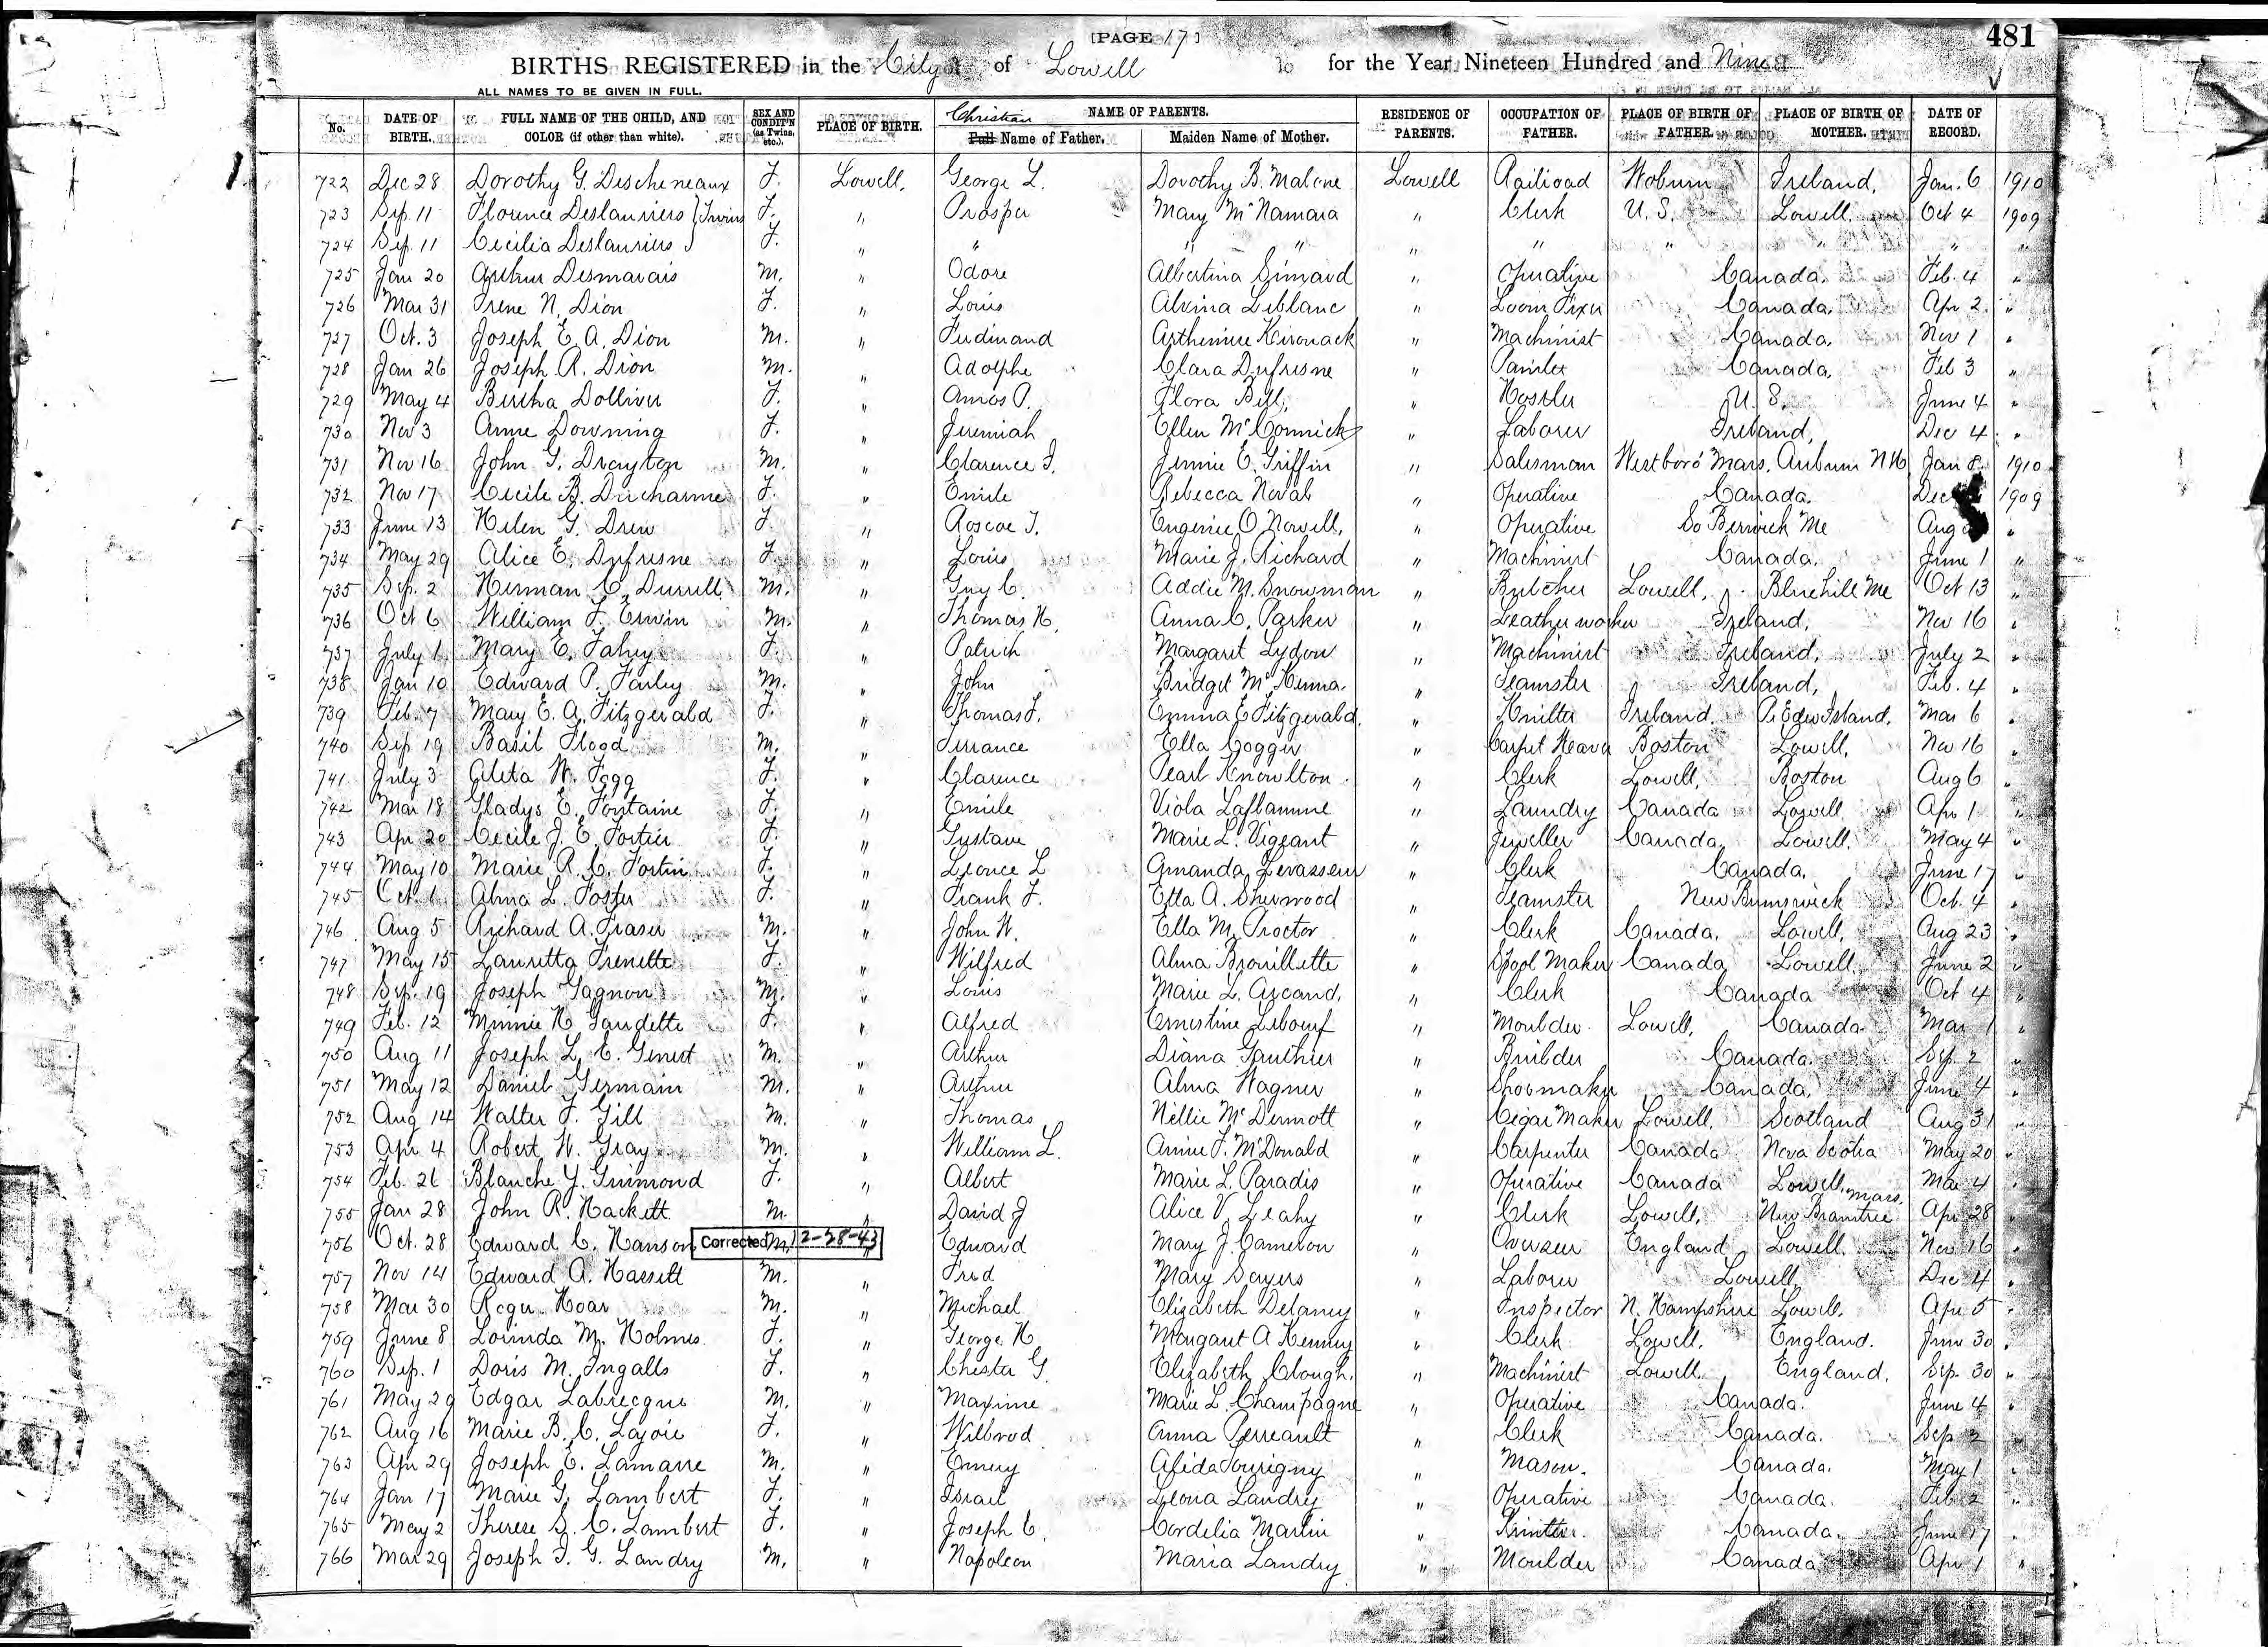 [PAGE 17]
481
BIRTHS REGISTERED in the City of Lowell for the Year Nineteen Hundred and Nine
ALL NAMES TO BE GIVEN IN FULL.
No. DATE OF BIRTH. FULL NAME OF THE CHILD, AND COLOR (if other than white). SEX AND CONDIT'N (as Twins, etc.). PLACE OF BIRTH. NAME OF PARENTS. Christian Full Name of Father. Maiden Name of Mother. RESIDENCE OF PARENTS. OCCUPATION OF FATHER. PLACE OF BIRTH OF FATHER. PLACE OF BIRTH OF MOTHER. DATE OF RECORD.
722 Dec 28 Dorothy G. Descheneaux F. Lowell. George L. Dorothy B. Malone Lowell Railroad Woburn Ireland. Jan. 6 1910
723 Sep. 11 Florence Deslauriers } Twins F. " Prosper Mary McNamara " Clerk U. S. Lowell. Oct 4 1909
724 Sep. 11 Cecilia Deslauriers F. " " " " " " " " " "
725 Jan 20 Arthur Desmarais M. " Odore Albertina Simard " Operative Canada. Feb. 4 "
726 Mar 31 Irene N. Dion F. " Louis Alvina Leblanc " Loom Fixer Canada. Apr 2. "
727 Oct. 3 Joseph E. A. Dion M. " Ferdinand Arthemise Kirouack " Machinist Canada. Nov 1 "
728 Jan 26 Joseph R. Dion M. " Adolphe Clara Dufresne " Painter Canada. Feb 3 "
729 May 4 Bertha Dolliver F. " Amos P. Flora Bell, " Hostler U. S. June 4 "
730 Nov 3 Anne Downing F. " Jeremiah Ellen McCormick " Laborer Ireland, Dec 4. "
731 Nov 16 John G. Drayton M. " Clarence F. Jennie E. Griffin " Salesman Westboro' Mass. Auburn N H Jan 8. 1910
732 Nov 17 Cecile B. Ducharme F. " Emile Rebecca Noval " Operative Canada. Dec 1909
733 June 13 Helen G. Drew F. " Roscoe T. Eugenie O. Nowell, " Operative So Berwick Me Aug "
734 May 29 Alice E. Dufresne F. " Louis Marie J. Richard " Machinist Canada. June 1 "
735 Sep. 2 Herman C. Durrell M. " Guy C. Addie M. Snowman " Butcher Lowell, Bluehill Me Oct 13 "
736 Oct 6 William F. Erwin M. " Thomas H. Anna C. Parker " Leather worker Ireland. Nov 16 "
737 July 1 Mary E. Fahey F. " Patrick Margaret Lydon " Machinist Ireland, July 2 "
738 Jan 10 Edward P. Farley M. " John Bridget McKenna. " Teamster Ireland, Feb. 4 "
739 Feb. 7 Mary E. A. Fitzgerald F. " Thomas F. Emma E Fitzgerald. " Knitter Ireland. P. Edw Island. Mar 6 "
740 Sep 19 Basil Flood M. " Terrance Ella Cogger " Carpet Weaver Boston Lowell. Nov 16 "
741 July 3 Aleta W. Fogg F. " Clarence Pearl Knowlton " Clerk Lowell. Boston Aug 6 "
742 Mar 18 Gladys E. Fontaine F. " Emile Viola Laflamme " Laundry Canada Lowell Apr 1 "
743 Apr 20 Cecile J. E. Fortier F. " Gustave Marie L. Vigeant " Jeweller Canada Lowell. May 4 "
744 May 10 Marie R. C. Fortin F. " Leonce L Amanda Levasseur " Clerk Canada. June 17 "
745 Oct. 1 Alma L. Foster F. " Frank F. Etta A. Sherwood " Teamster New Brunswick Oct. 4 "
746 Aug 5 Richard A. Fraser M. " John W. Ella M. Proctor " Clerk Canada. Lowell. Aug 23 "
747 May 15 Lauretta Frenette F. " Wilfred Alma Brouillette " Spool Maker Canada Lowell. June 2 "
748 Sep. 19 Joseph Gagnon M. " Louis Marie L. Arcand. " Clerk Canada Oct 4 "
749 Feb. 12 Minnie H. Gaudette F. " Alfred Ernestine Leboeuf " Moulder Lowell. Canada Mar 1 "
750 Aug 11 Joseph L. E. Genest M. " Arthur Diana Gauthier " Builder Canada. Sep. 2 "
751 May 12 Daniel Germain M. " Arthur Alma Wagner " Shoemaker Canada. June 4 "
752 Aug 14 Walter F. Gill M. " Thomas Nellie McDermott " Cigar Maker Lowell. Scotland Aug 31 "
753 Apr. 4 Robert W. Gray M. " William L. Annie F. McDonald " Carpenter Canada Nova Scotia May 20 "
754 Feb. 26 Blanche Y. Guimond F. " Albert Marie L. Paradis " Operative Canada Lowell. Mar 4 "
755 Jan 28 John R. Hackett M. " David J Alice V. Leahy " Clerk Lowell. New Braintree Mass. Apr 28 "
756 Oct. 28 Edward C. Hanson Corrected 12-28-43 M. " Edward Mary J. Cameron " Overseer England Lowell. Nov 16 "
757 Nov 14 Edward A. Hassett M. " Fred Mary Sayers " Laborer Lowell, Dec 4 "
758 Mar 30 Roger Hoar M. " Michael Elizabeth Delaney " Inspector N. Hampshire Lowell. Apr 5 "
759 June 8 Lorinda M. Holmes F. " George H. Margaret A Kenney " Clerk Lowell. England. June 30 "
760 Sep. 1 Doris M. Ingalls F. " Chester G. Elizabeth Clough. " Machinist Lowell. England. Sep. 30 "
761 May 29 Edgar Labrecque M. " Maxime Marie L. Champagne " Operative Canada. June 4 "
762 Aug 16 Marie B. C. Lajoie F. " Wilbrod Anna Perreault " Clerk Canada. Sep 2 "
763 Apr 29 Joseph E. Lamarre M. " Emery Alida Tourigny " Mason. Canada. May 1 "
764 Jan 17 Marie G. Lambert F. " Israel Leona Landry " Operative Canada. Feb 2 "
765 May 2 Therese S. C. Lambert F. " Joseph C. Cordelia Martin " Printer. Canada. June 17 "
766 Mar 29 Joseph T. G. Landry M. " Napoleon Maria Landry " Moulder Canada Apr 1 "